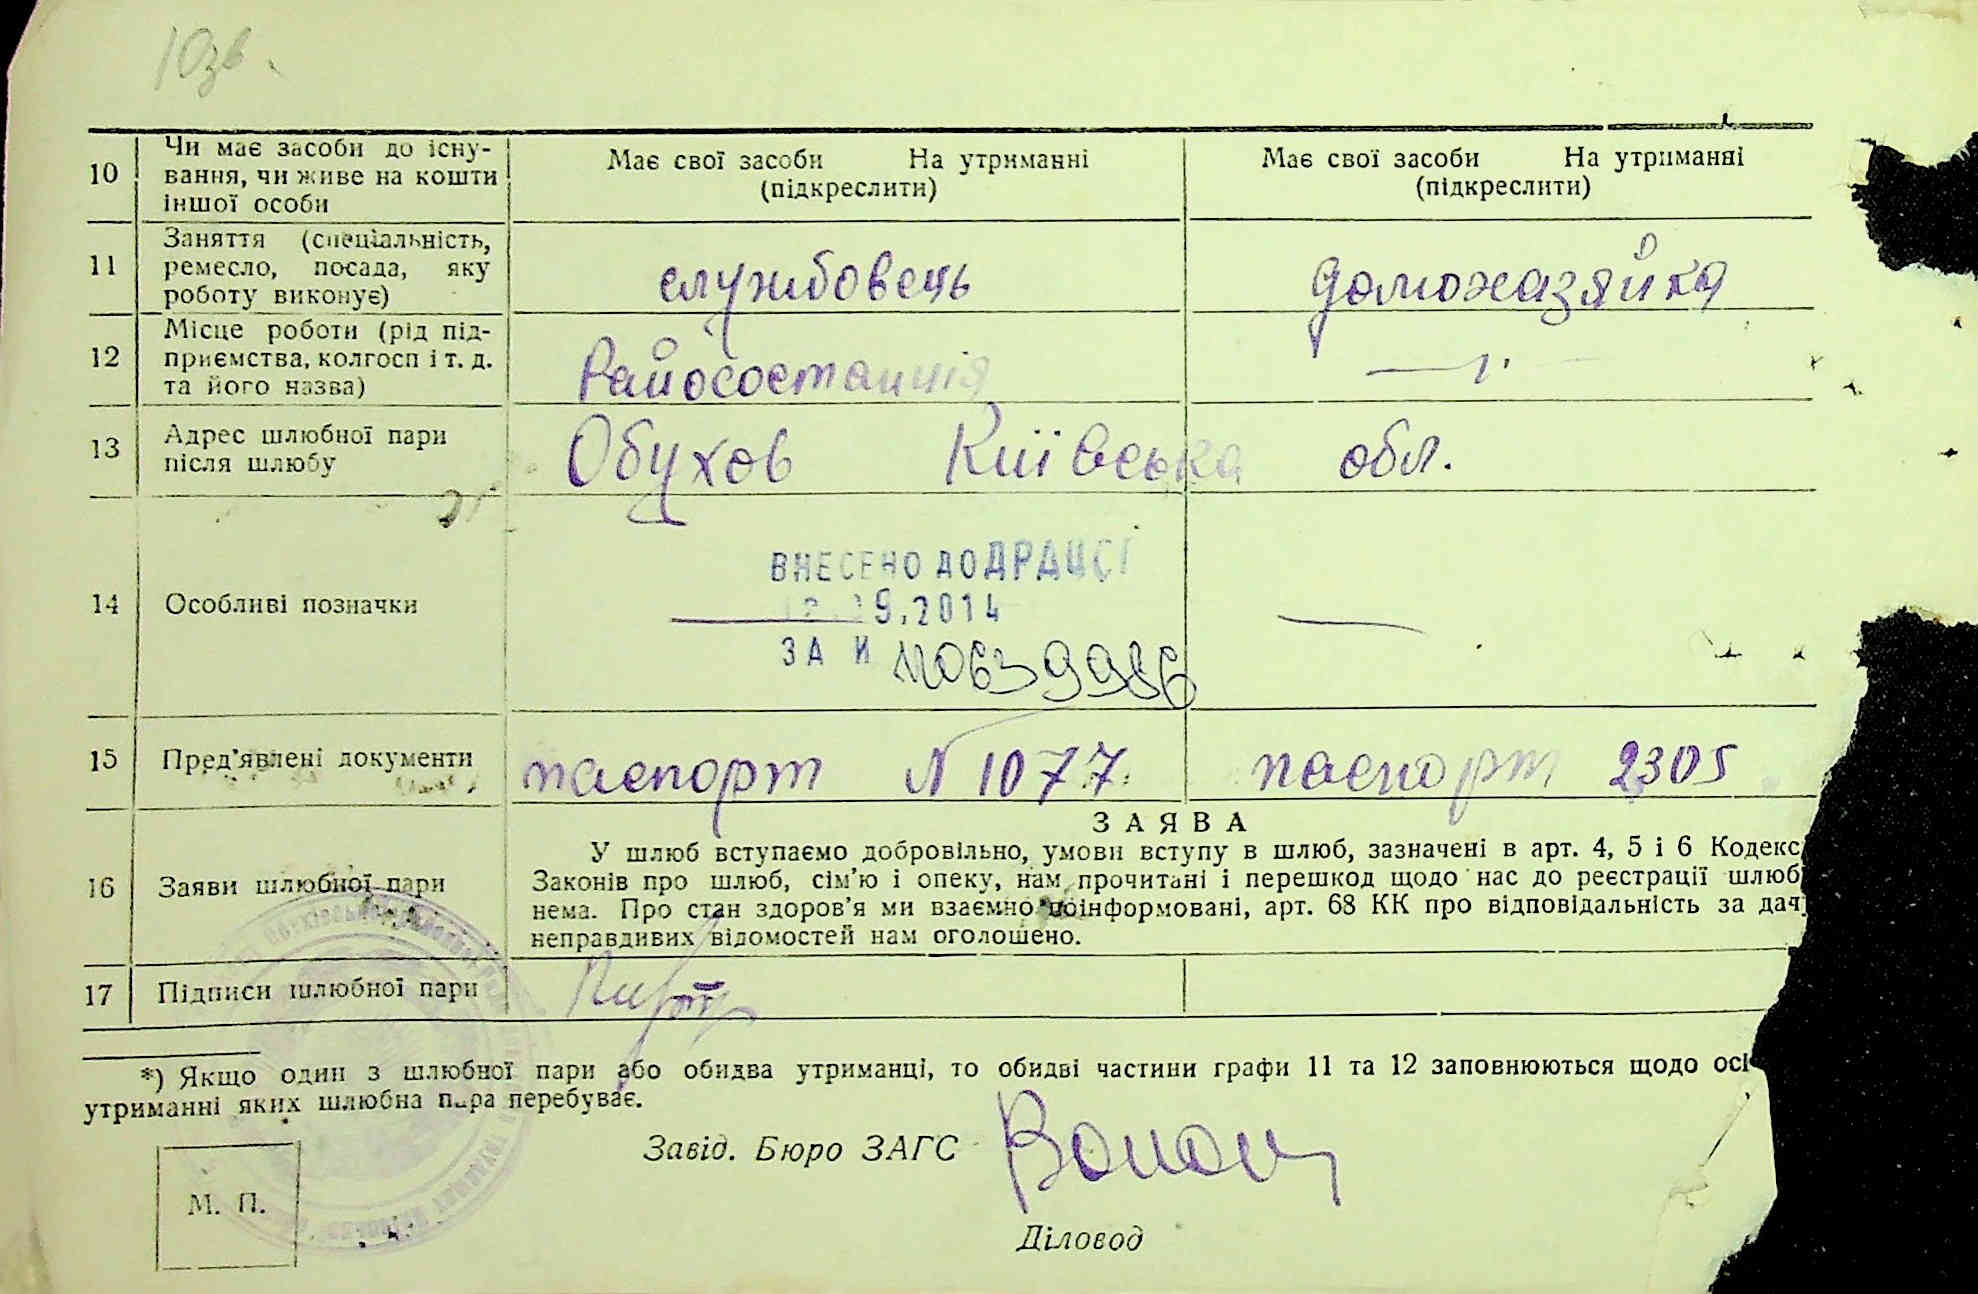 10зв.
10 Чи має засоби до існу-
вання, чи живе на кошти
іншої особи
Має свої засоби На утриманні
(підкреслити)
Має свої засоби На утриманні
(підкреслити)
11 Заняття (спеціальність,
ремесло, посада, яку
роботу виконує)
службовець
домохазяйка
12 Місце роботи (рід під-
приємства, колгосп і т. д.
та його назва)
13 Адрес шлюбної пари
після шлюбу
Обухов Київська обл.
14 Особливі позначки
ВНЕСЕНО ДО ДРАЦСГ
9.2014
ЗА №
15 Пред'явлені документи
паспорт N 1077
паспорт 2305
16 Заяви шлюбної пари
ЗАЯВА
У шлюб вступаємо добровільно, умови вступу в шлюб, зазначені в арт. 4, 5 і 6 Кодекс
Законів про шлюб, сім'ю і опеку, нам прочитані і перешкод щодо нас до реєстрації шлюб
нема. Про стан здоров'я ми взаємно поінформовані, арт. 68 КК про відповідальність за дач
неправдивих відомостей нам оголошено.
17 Підписи шлюбної пари
*) Якщо один з шлюбної пари або обидва утриманці, то обидві частини графи 11 та 12 заповнюються щодо осі
утриманні яких шлюбна пара перебуває.
Завід. Бюро ЗАГС
М. П.
Діловод